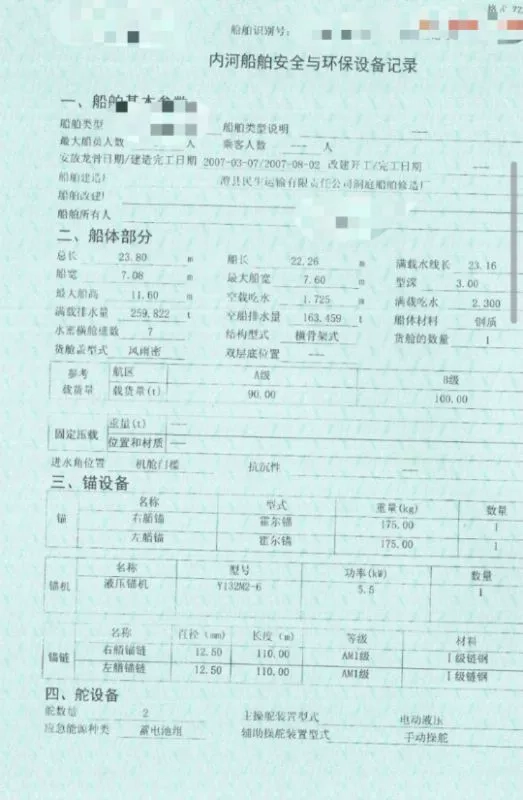 船舶识别号：
内河船舶安全与环保设备记录
一、船舶基本参数
船舶类型 船舶类型说明 ——
最大船员人数 人 乘客人数 —— 人
安放龙骨日期/建造完工日期 2007-03-07/2007-08-02 改建开工/完工日期 ——
船舶建造厂 澧县民生运输有限责任公司洞庭船舶修造厂
船舶改建厂
船舶所有人
二、船体部分
总长 23.80 m 船长 22.26 m 满载水线长 23.16
船宽 7.08 m 最大船宽 7.60 m 型深 3.00
最大船高 11.60 m 空载吃水 1.725 m 满载吃水 2.300
满载排水量 259.822 t 空船排水量 163.459 t 船体材料 钢质
水密横舱壁数 7 结构型式 横骨架式 货舱的数量 1
货舱盖型式 风雨密 双层底位置 ——
参考载货量 航区 A级 B级
载货量(t) 90.00 100.00
固定压载 重量(t) ——
位置和材质 ——
进水角位置 机舱门槛 抗沉性 ——
三、锚设备
锚 名称 型式 重量(kg) 数量
右艏锚 霍尔锚 175.00 1
左艏锚 霍尔锚 175.00 1
锚机 名称 型号 功率(kW) 数量
液压锚机 Y132M2-6 5.5 1
锚链 名称 直径（mm） 长度（m） 等级 材料
右艏锚链 12.50 110.00 AM1级 Ⅰ级链钢
左艏锚链 12.50 110.00 AM1级 Ⅰ级链钢
四、舵设备
舵数量 2 主操舵装置型式 电动液压
应急能源种类 蓄电池组 辅助操舵装置型式 手动操舵